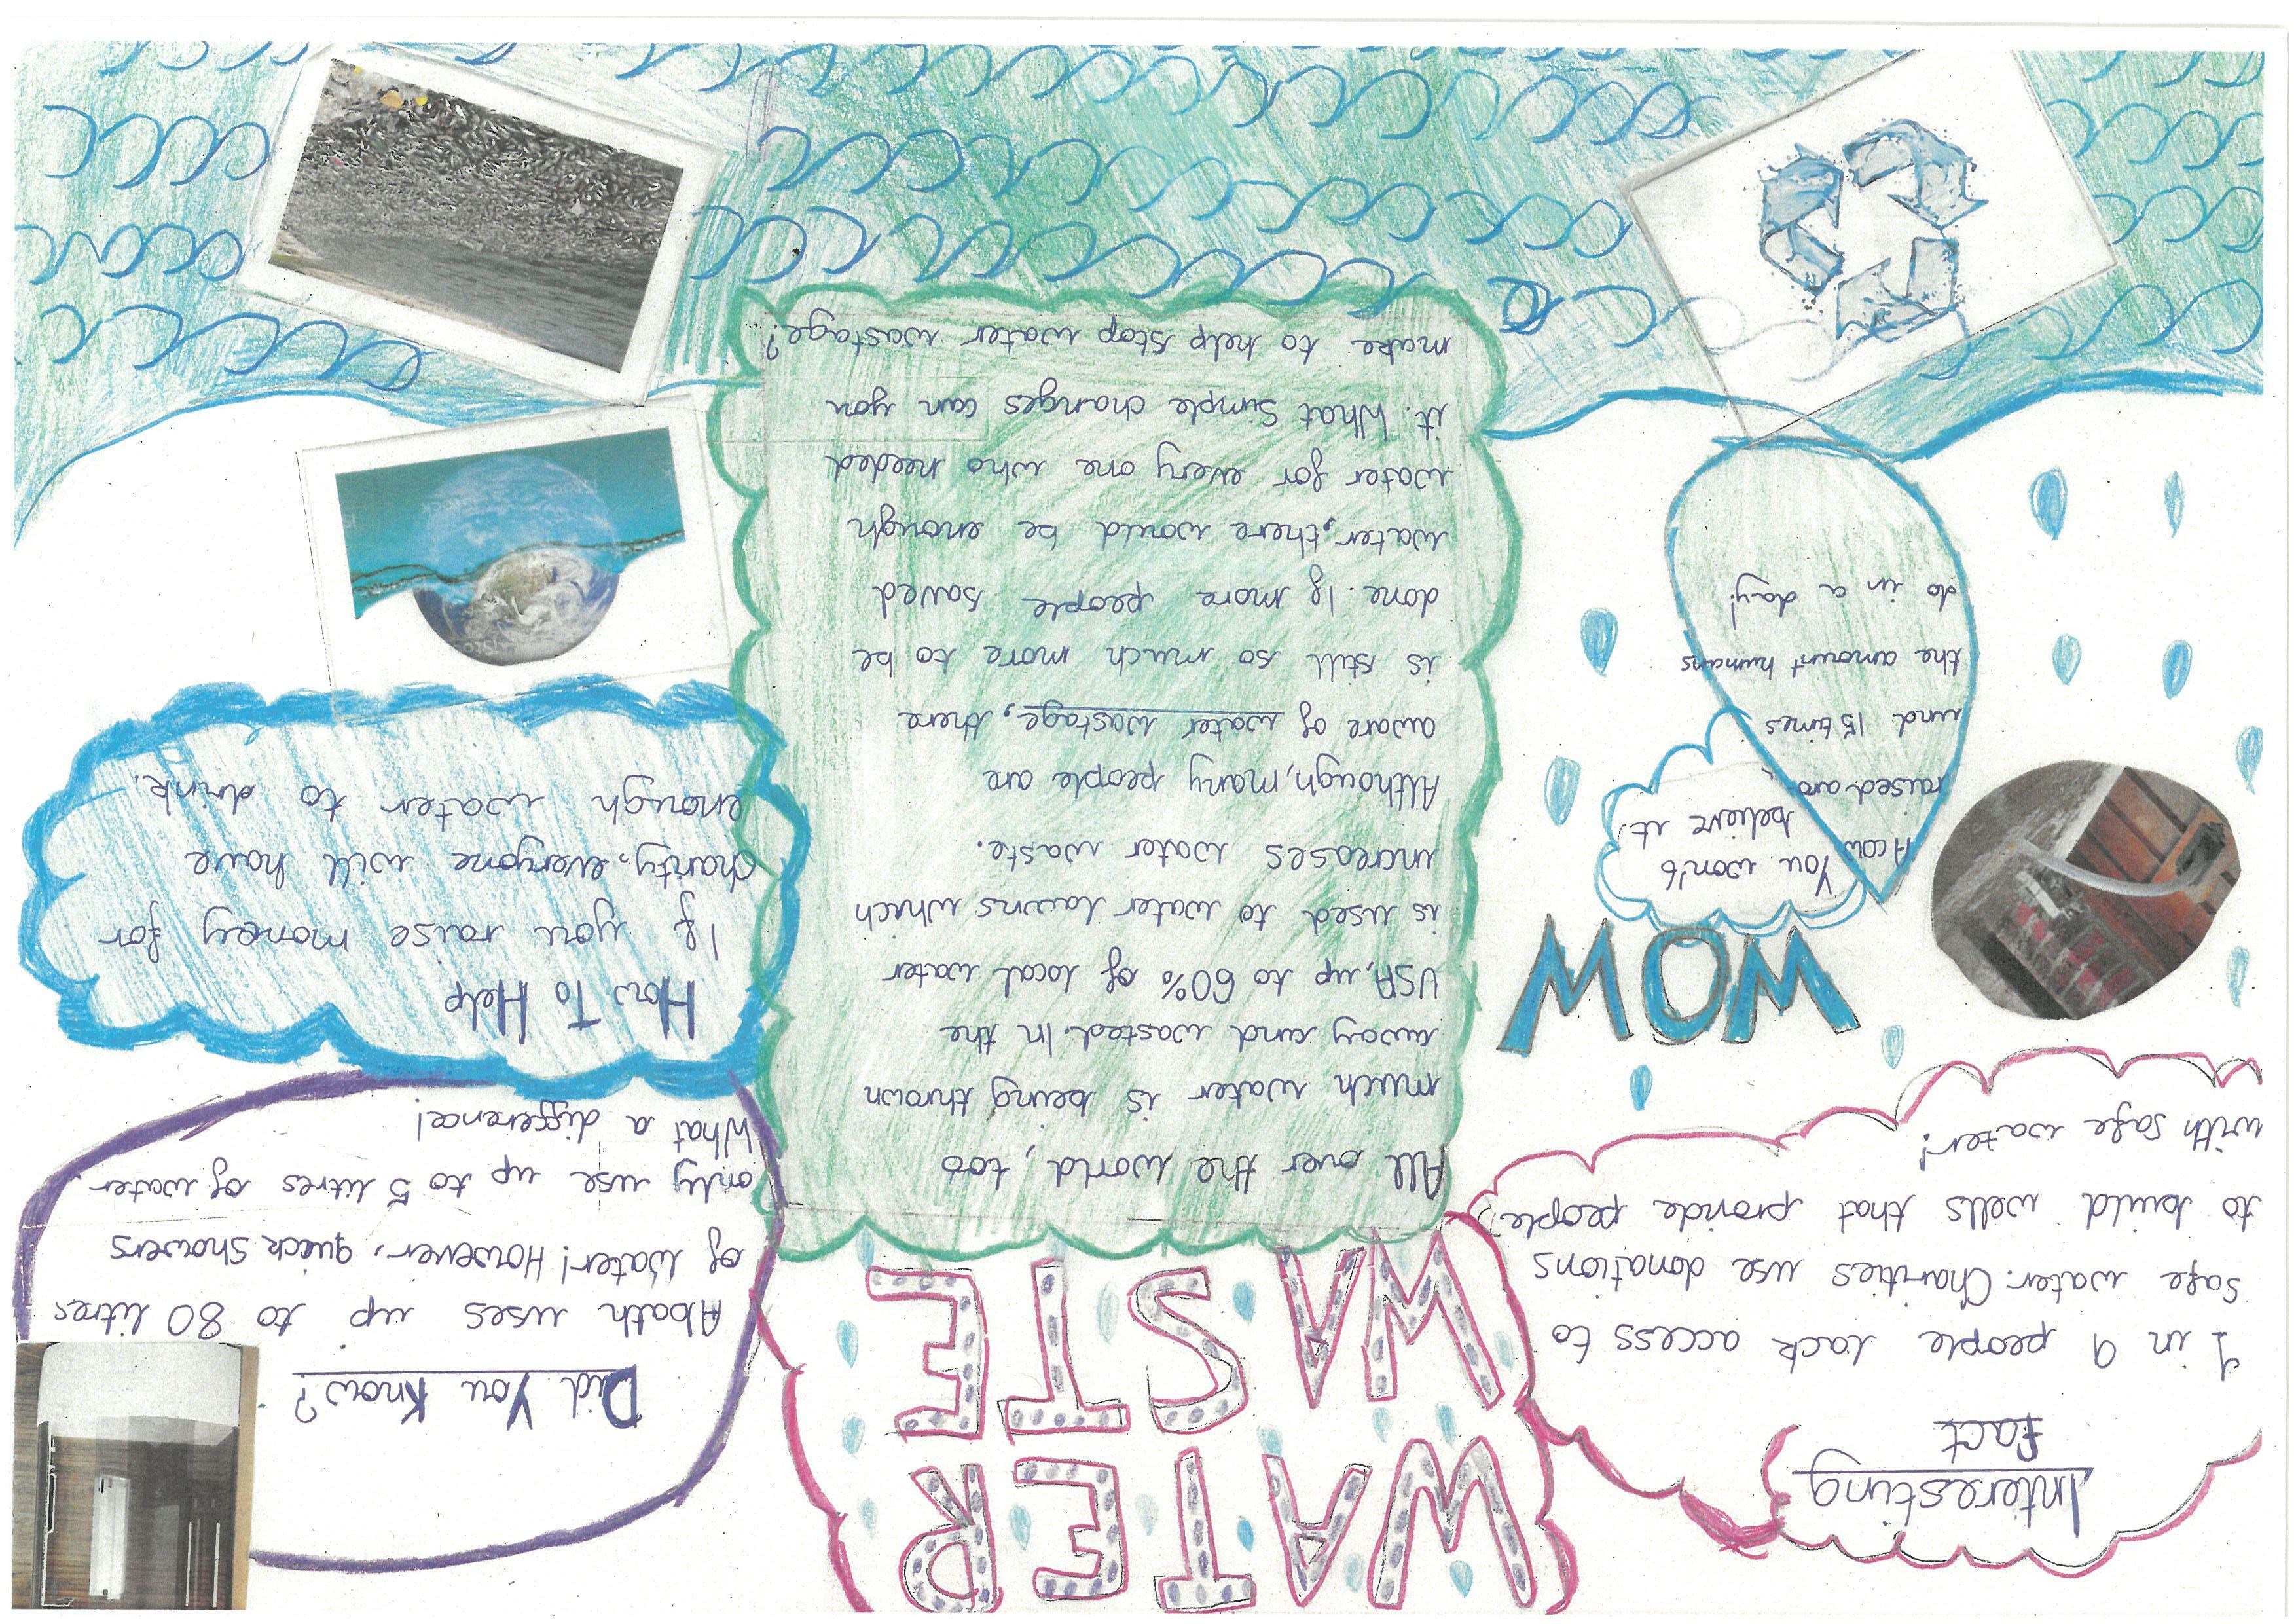 WATER
WASTE
Interesting
Fact
1 in 9 people lack access to
safe water. Charities use donations
to build wells that provide people
with safe water!
WOW
You won't
believe it!
A cow
raised aro
und 15 times
the amount humans
do in a day!
All over the world, too
much water is being thrown
away and wasted. In the
USA, up to 60% of local water
is used to water lawns which
increases water waste.
Although, many people are
aware of water wastage, there
is still so much more to be
done. If more people saved
water, there would be enough
water for every one who needed
it. What simple changes can you
make to help stop water wastage?
Did You Know?
A bath uses up to 80 litres
of water! However, quick showers
only use up to 5 litres of water
What a difference!
How To Help
If you raise money for
charity, everyone will have
enough water to drink.